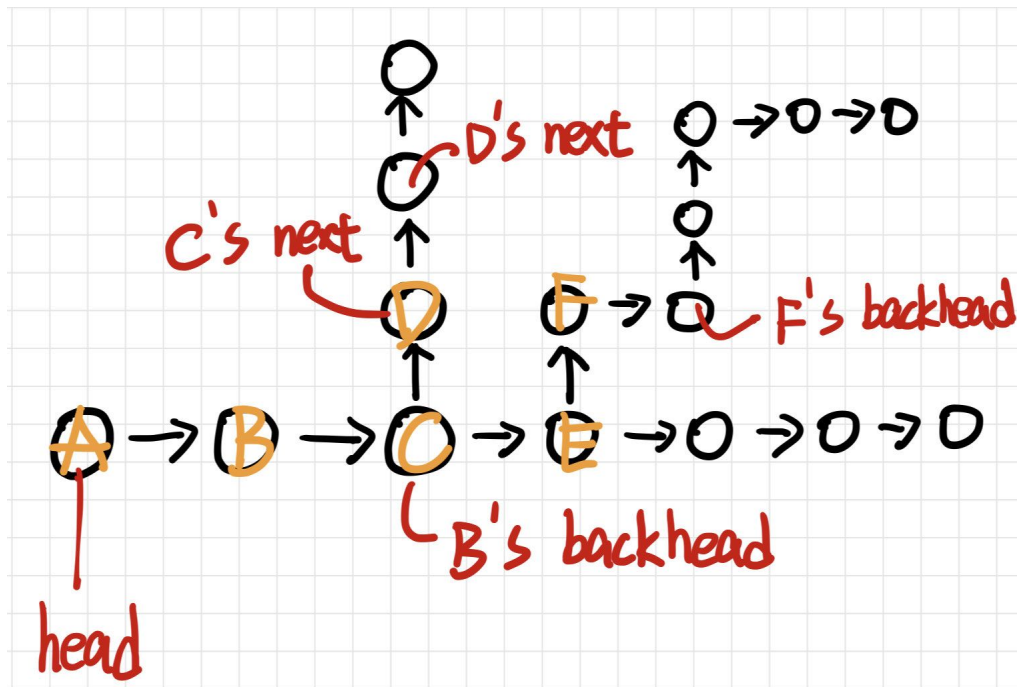 D's next
C's next
D
F
F's backhead
A
B
C
E
B's backhead
head